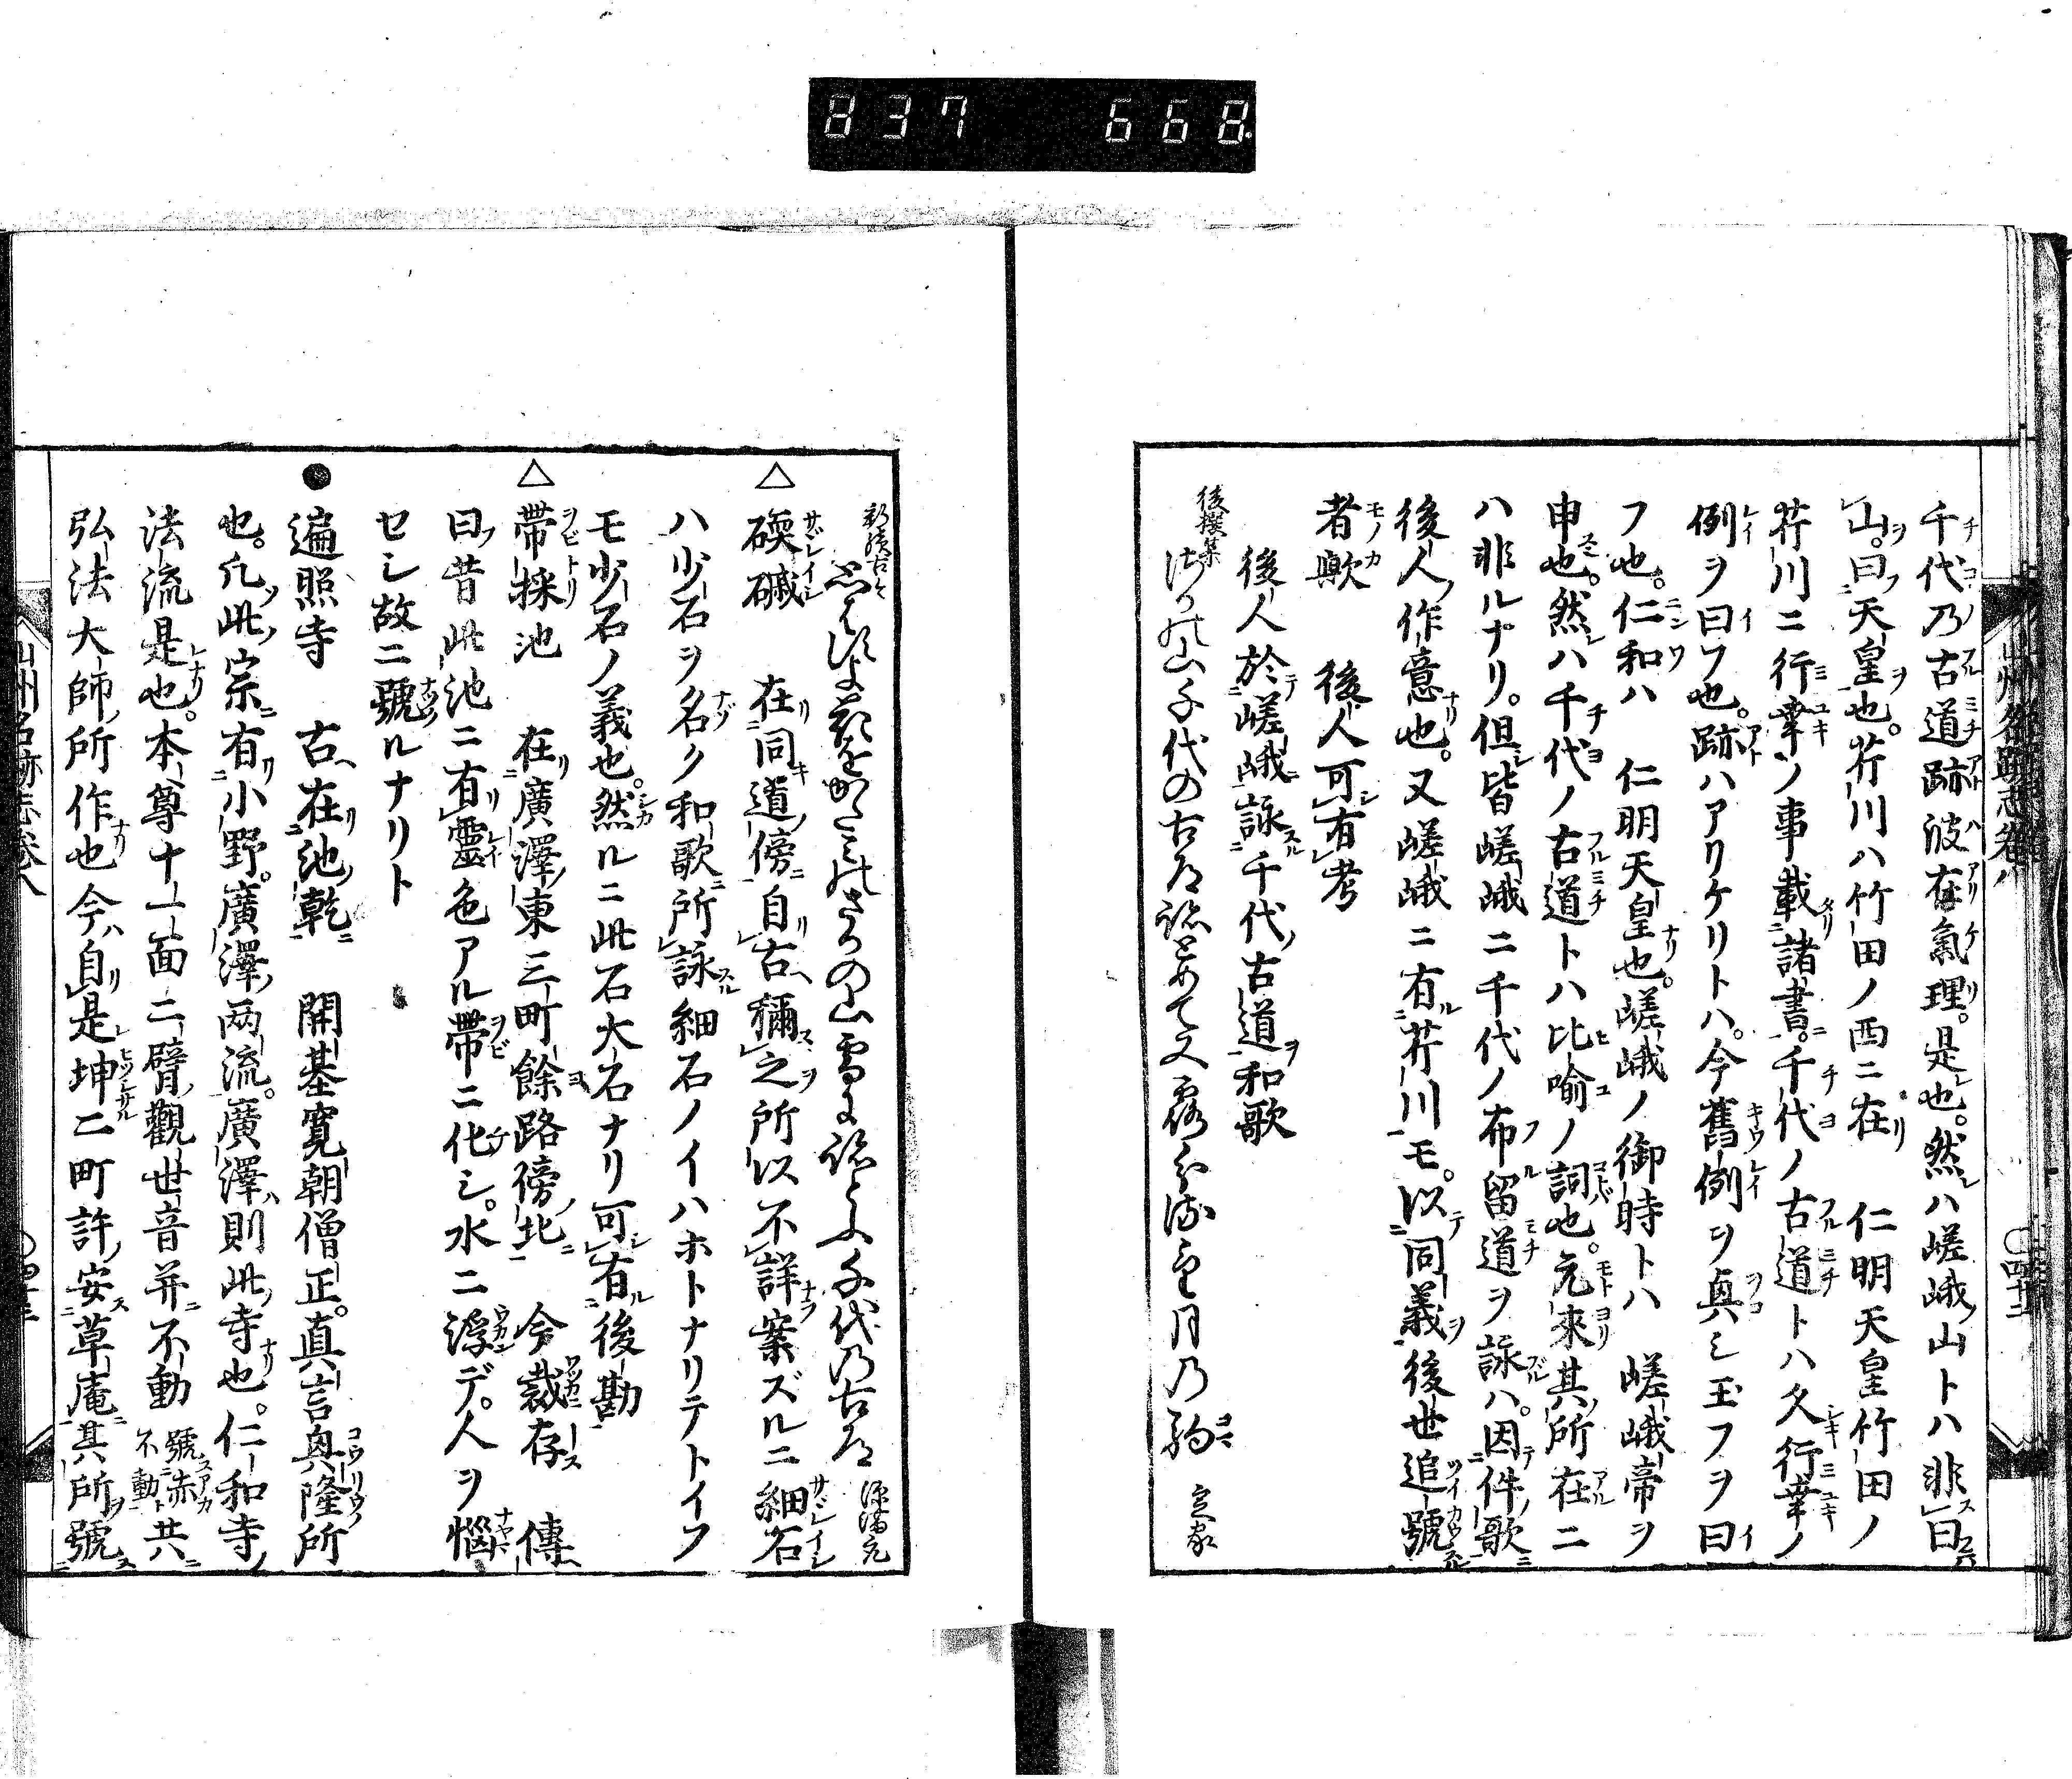 837 668
千代乃古道跡波在氣理。是也。然ハ嵯峨山トハ非曰
山。曰天皇也。芹川ハ竹田ノ西ニ在 仁明天皇竹田ノ
芹川ニ行幸ソ事載諸書。千代ノ古道トハ久行幸ノ
例ヲ曰フ也。跡ハアリケリトハ。今舊例ヲ真シ玉フヲ曰
フ也。仁和ハ 仁明天皇也。嵯峨ノ御時トハ 嵯峨帝ヲ
申也。然ハ千代ノ古道トハ比喻ノ詞也。元來其所在ニ
ハ非ルナリ。但皆嵯峨ニ千代ノ布留道ヲ詠ハ。因件歌
後人作意也。又嵯峨ニ有芹川モ。以同義後世追號
者歟 後人可有考
後人於嵯峨詠千代古道和歌
後撰集
千代の古道跡とめて又露分る望月乃駒 定家
山州名跡志卷八
千代乃古道 源滿元
△ 磢磩 在同道傍自古稱之所以不詳案ズルニ細石
ハ少石ヲ名ク和歌所詠細石ノイハホトナリテトイフ
モ少石ノ義也。然ルニ此石大石ナリ可有後勘
△ 帶採池 在廣澤東三町餘路傍北 今裁存 傳
曰昔此池ニ有靈色アル帶ニ化シ。水ニ浮デ。人ヲ惱
セシ故ニ號ルナリト
● 遍照寺 古在池乾 開基寬朝僧正。真言興隆所
也。凡此宗有小野。廣澤兩流。廣澤則此寺也。仁和寺
法流是也。本尊十一面二臂觀世音并不動 號赤不動 共
弘法大師所作也今自是坤二町許安草庵其所號
山州名跡志卷八